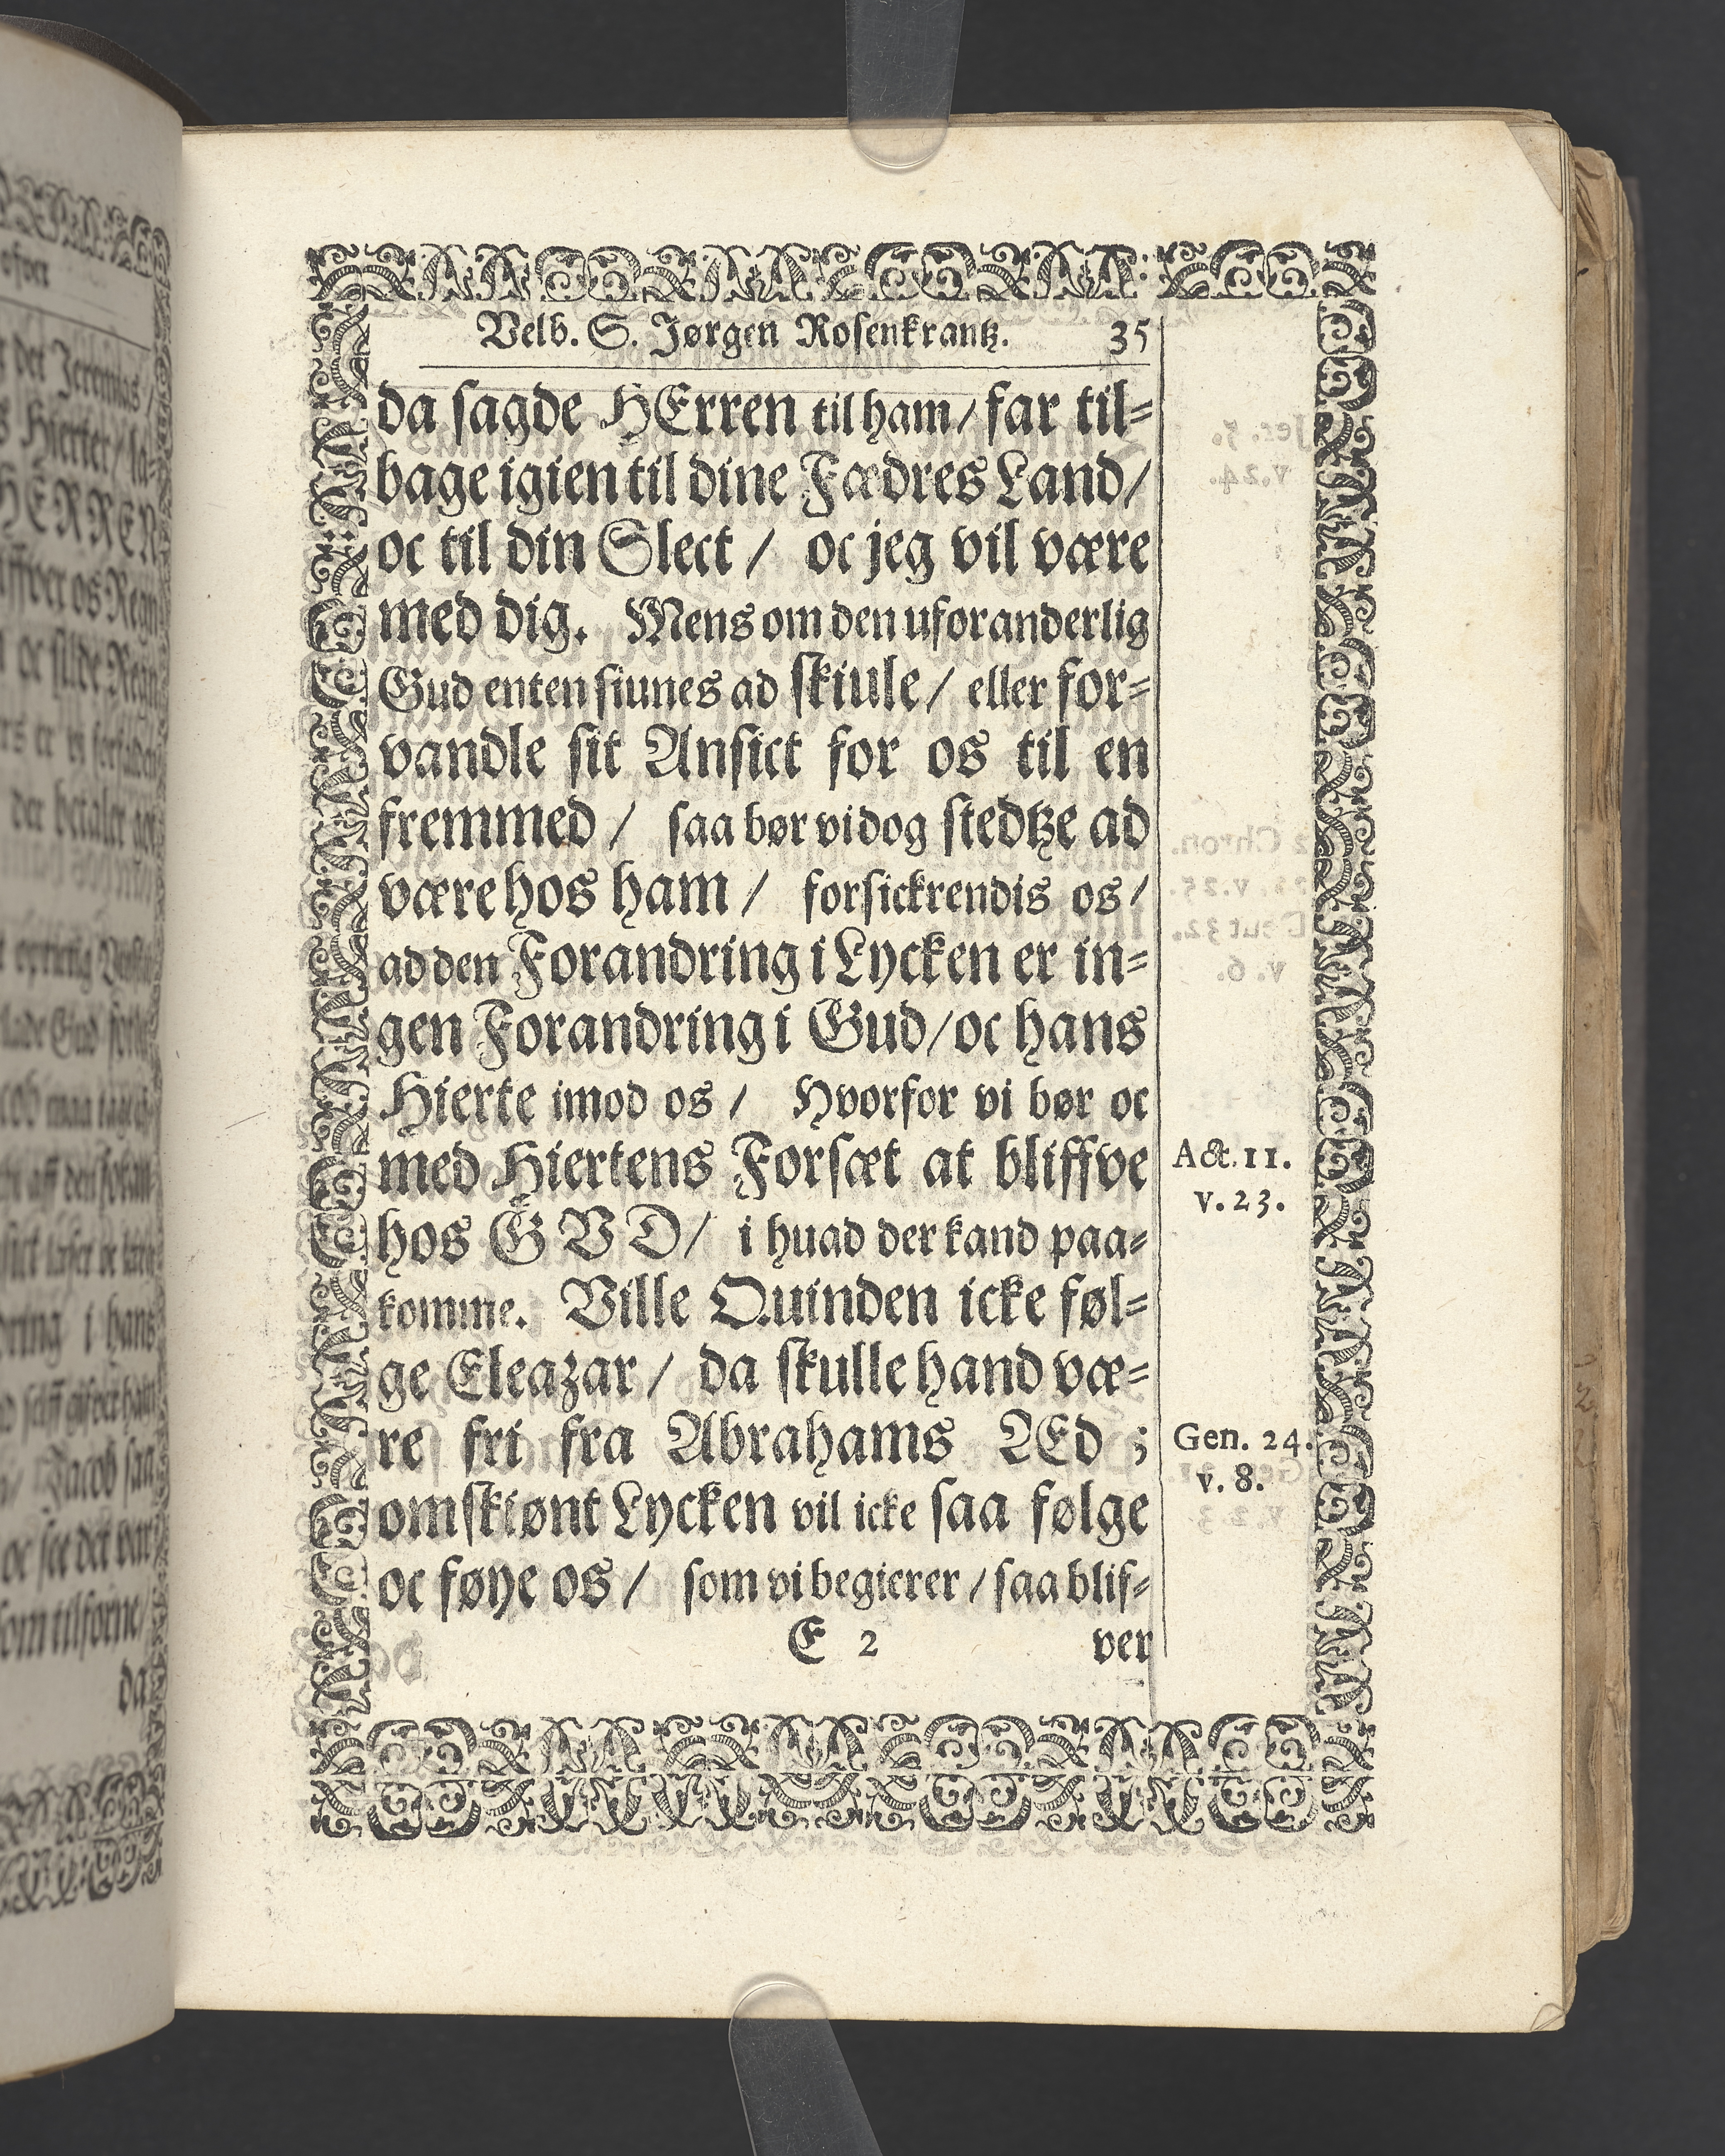 Velb. S. Jørgen Rosenkrantz. 35
da sagde HErren til ham/ far til-
bage igien til dine Fædres Land/
oc til din Slect / oc jeg vil være
med dig. Mens om den uforanderlig
Gud enten siunes ad skiule/ eller for-
vandle sit Ansict for os til en
fremmed / saa bør vi dog stedtze ad
være hos ham / forsickrendis os/
ad den Forandring i Lycken er in-
gen Forandring i Gud/oc hans
Hierte imod os / Hvorfor vi bør oc
med Hiertens Forsæt at bliffve
Act. 11.
v. 23.
hos GVD/ i huad der kand paa-
komme. Ville Quinden icke føl-
ge Eleazar / da skulle hand væ-
re fri fra Abrahams Æd ;
Gen. 24.
v. 8.
omskiønt Lycken vil icke saa følge
oc føye os / som vi begierer / saa blif-
E 2 ver